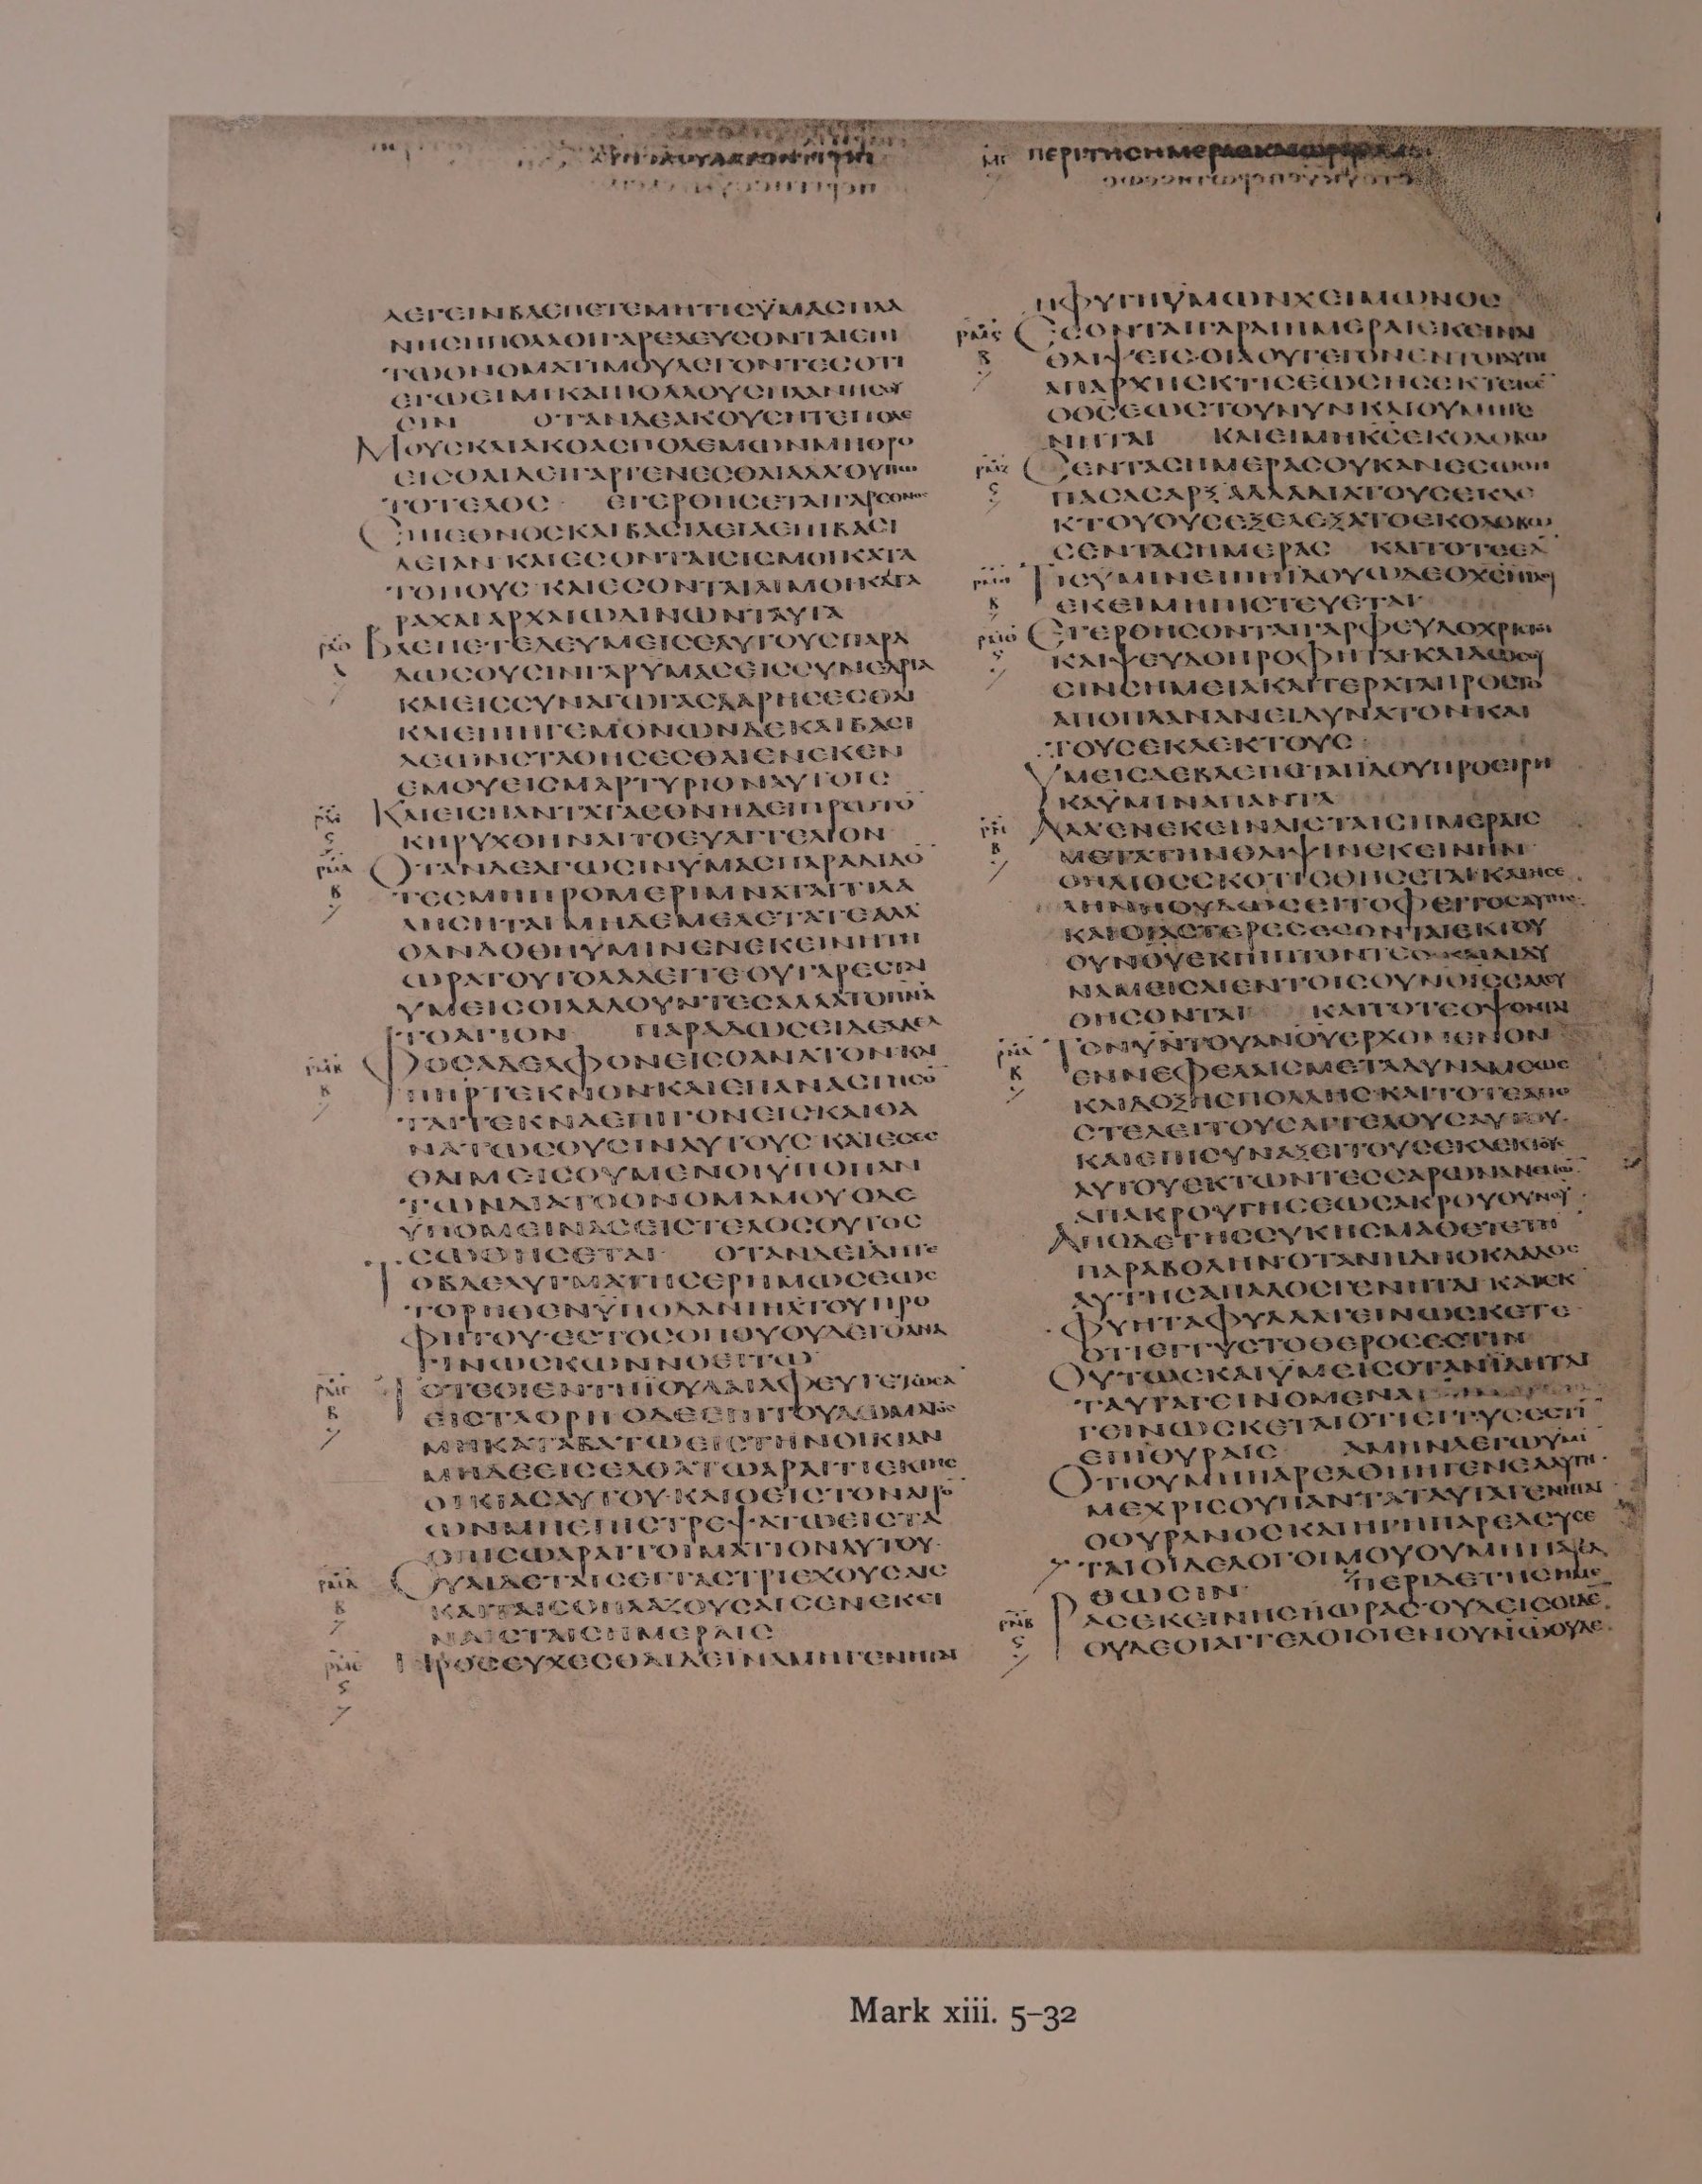 ΛΕΓΕΙΝΒΛΕΠΕΤΕΜΗΤΙϹΫΜΑϹΠΛΑ
ΝΗϹΗΠΟΛΛΟΙΓΑΡΕΛΕΥϹΟΝΤΑΙΕΠΙ
ΤΩΟΝΟΜΑΤΙΜΟΥΛΕΓΟΝΤΕϹΟΤΙ
ΕΓΩΕΙΜΙΚΑΙΠΟΛΛΟΥϹΠΛΑΝΗϹΟΥ
ϹΙΝ ΟΤΑΝΔΕΑΚΟΥϹΗΤΕΠΟΛΕ
ΜΟΥϹΚΑΙΑΚΟΑϹΠΟΛΕΜΩΝΜΗΘΡΟ
ΕΙϹΘΑΙΔΕΙΓΑΡΓΕΝΕϹΘΑΙΑΛΛΟΥΠΩ
ΤΟΤΕΛΟϹ ΕΓΕΡΘΗϹΕΤΑΙΓΑΡΕΘΝΟϹ
ΕΠΙΕΘΝΟϹΚΑΙΒΑϹΙΛΕΙΑΕΠΙΒΑϹΙ
ΛΕΙΑΝΚΑΙΕϹΟΝΤΑΙϹΙϹΜΟΙΚΑΤΑ
ΤΟΠΟΥϹΚΑΙΕϹΟΝΤΑΙΛΙΜΟΙΚΑΙΤΑ
ΡΑΧΑΙΑΡΧΑΙΩΔΙΝΩΝΤΑΥΤΑ
ΒΛΕΠΕΤΕΔΕΥΜΕΙϹΕΑΥΤΟΥϹΠΑΡΑ
ΔΩϹΟΥϹΙΝΓΑΡΥΜΑϹΕΙϹϹΥΝΕΔΡΙΑ
ΚΑΙΕΙϹϹΥΝΑΓΩΓΑϹΔΑΡΗϹΕϹΘΑΙ
ΚΑΙΕΠΙΗΓΕΜΟΝΩΝΔΕΚΑΙΒΑϹΙ
ΛΕΩΝϹΤΑΘΗϹΕϹΘΑΙΕΝΕΚΕΝ
ΕΜΟΥΕΙϹΜΑΡΤΥΡΙΟΝΑΥΤΟΙϹ
ΚΑΙΕΙϹΠΑΝΤΑΤΑΕΘΝΗΔΕΙΠΡΩΤΟ
ΚΗΡΥΧΘΗΝΑΙΤΟΕΥΑΓΓΕΛΙΟΝ
ΟΤΑΝΔΕΑΓΩϹΙΝΥΜΑϹΠΑΡΑΔΙΔΟ
ΤΕϹΜΗΠΡΟΜΕΡΙΜΝΑΤΑΙΤΙΛΑ
ΛΗϹΗΤΑΙΜΗΔΕΜΕΛΕΤΑΤΕΑΛΛ
ΟΑΝΔΟΘΗΥΜΙΝΕΝΕΚΕΙΝΗΤΗ
ΩΡΑΤΟΥΤΟΛΑΛΕΙΤΕΟΥΓΑΡΕϹΤΕ
ΥΜΕΙϹΟΙΛΑΛΟΥΝΤΕϹΑΛΛΑΤΟΠΝΑ
ΤΟΑΓΙΟΝ ΠΑΡΑΔΩϹΕΙΔΕΑΔΕΛ
ΦΟϹΑΔΕΛΦΟΝΕΙϹΘΑΝΑΤΟΝΚΑΙ
ΠΗΡΤΕΚΝΟΝΚΑΙΕΠΑΝΑϹΤΗϹΟ
ΤΑΙΤΕΚΝΑΕΠΙΓΟΝΕΙϹΚΑΙΘΑ
ΝΑΤΩϹΟΥϹΙΝΑΥΤΟΥϹΚΑΙΕϹΕϹ
ΘΑΙΜΕΙϹΟΥΜΕΝΟΙΫΠΟΠΑΝ
ΤΩΝΔΙΑΤΟΟΝΟΜΑΜΟΥΟΔΕ
ΫΠΟΜΕΙΝΑϹΕΙϹΤΕΛΟϹΟΥΤΟϹ
ϹΩΘΗϹΕΤΑΙ ΟΤΑΝΔΕΙΔΗΤΕ
ΤΟΒΔΕΛΥΓΜΑΤΗϹΕΡΗΜΩϹΕΩϹ
ΤΟΡΗΘΕΝΫΠΟΔΑΝΙΗΛΤΟΥΠΡΟ
ΦΗΤΟΥΕϹΤΟϹΟΠΟΥΟΥΔΕΙΟΑΝΑ
ΓΙΝΩϹΚΩΝΝΟΕΙΤΩ
ΤΟΤΕΟΙΕΝΤΗΪΟΥΔΑΙΑΦΕΥΓΕΤΩϹΑ
ΕΙϹΤΑΟΡΗΟΔΕΕΠΙΤΟΥΔΩΜΑΤΟϹ
ΜΗΚΑΤΑΒΑΤΩΕΙϹΤΗΝΟΙΚΙΑΝ
ΜΗΔΕΕΙϹΕΛΘΑΤΩΑΡΑΙΤΙΕΚΤΗϹ
ΟΙΚΙΑϹΑΥΤΟΥΚΑΙΟΕΙϹΤΟΝΑΓΡΟ
ΩΝΜΗΕΠΙϹΤΡΕΨΑΤΩΕΙϹΤΑ
ΟΠΙϹΩΑΡΑΙΤΟΙΜΑΤΙΟΝΑΥΤΟΥ
ΟΥΑΙΔΕΤΑΙϹΕΓΓΑϹΤΡΙΕΧΟΥϹΑΙϹ
ΚΑΙΤΑΙϹΘΗΛΑΖΟΥϹΑΙϹΕΝΕΚΕΙ
ΝΑΙϹΤΑΙϹΗΜΕΡΑΙϹ
ΠΡΟϹΕΥΧΕϹΘΑΙΔΕΙΝΑΜΗΓΕΝΗΤΑΙ
ΠΕΡΙΤΗϹΗΜΕΡΑϹΚΑΙΩΡΑϹ
ΗΦΥΓΗΫΜΩΝΧΕΙΜΩΝΟϹ
ΕϹΟΝΤΑΙΓΑΡΑΙΗΜΕΡΑΙΕΚΕΙΝΑΙ
ΘΛΙΨΕΙϹΟΙΑΟΥΓΕΓΟΝΕΝΤΟΙΑΥΤΗ
ΑΠΑΡΧΗϹΚΤΙϹΕΩϹΗϹΕΚΤΙϹΕ
ΟΘϹΕΩϹΤΟΥΝΥΝΚΑΙΟΥΜΗΓΕ
ΝΗΤΑΙ ΚΑΙΕΙΜΗΚϹΕΚΟΛΟΒΩ
ϹΕΝΤΑϹΗΜΕΡΑϹΟΥΚΑΝΕϹΩΘΗ
ΠΑϹΑϹΑΡΞΑΛΛΑΔΙΑΤΟΥϹΕΚΛΕ
ΚΤΟΥϹΟΥϹΕΞΕΛΕΞΑΤΟΕΚΟΛΟΒΩ
ϹΕΝΤΑϹΗΜΕΡΑϹ ΚΑΙΤΟΤΕΕΑ
ΤΙϹΫΜΙΝΕΙΠΗΪΔΟΥΩΔΕΟΧϹΗΪΔΟΥ
ΕΚΕΙΜΗΠΙϹΤΕΥΕΤΑΙ
ΕΓΕΡΘΗϹΟΝΤΑΙΓΑΡΨΕΥΔΟΧΡΙϹΤΟΙ
ΚΑΙΨΕΥΔΟΠΡΟΦΗΤΑΙΚΑΙΔΩϹΟΥ
ϹΙΝϹΗΜΕΙΑΚΑΙΤΕΡΑΤΑΠΡΟϹΤΟ
ΑΠΟΠΛΑΝΑΝΕΙΔΥΝΑΤΟΝΚΑΙ
ΤΟΥϹΕΚΛΕΚΤΟΥϹ
ΥΜΕΙϹΔΕΒΛΕΠΕΤΑΙΪΔΟΥΠΡΟΕΙΡΗ
ΚΑΫΜΙΝΑΠΑΝΤΑ
ΑΛΛΕΝΕΚΕΙΝΑΙϹΤΑΙϹΗΜΕΡΑΙϹ
ΜΕΤΑΤΗΝΘΛΙΨΙΝΕΚΕΙΝΗΝ
ΟΗΛΙΟϹϹΚΟΤΙϹΘΗϹΕΤΑΙΚΑΙΗϹΕ
ΛΗΝΗΟΥΔΩϹΕΙΤΟΦΕΓΓΟϹΑΥΤΗϹ
ΚΑΙΟΙΑϹΤΕΡΕϹΕϹΟΝΤΑΙΕΚΤΟΥ
ΟΥΝΟΥΕΚΠΙΠΤΟΝΤΕϹΚΑΙΑΙΔΥ
ΝΑΜΕΙϹΑΙΕΝΤΟΙϹΟΥΝΟΙϹϹΑΛΕΥ
ΘΗϹΟΝΤΑΙ ΚΑΙΤΟΤΕΟΨΟΝΤΑΙ
ΤΟΝΥΝΤΟΥΑΝΟΥΕΡΧΟΜΕΝΟΝ
ΕΝΝΕΦΕΛΑΙϹΜΕΤΑΔΥΝΑΜΕΩϹ
ΚΑΙΔΟΞΗϹΠΟΛΛΗϹΚΑΙΤΟΤΕΑΠΟ
ϹΤΕΛΕΙΤΟΥϹΑΓΓΕΛΟΥϹΑΥΤΟΥ
ΚΑΙΕΠΙϹΥΝΑΞΕΙΤΟΥϹΕΚΛΕΚΤΟΥϹ
ΑΥΤΟΥΕΚΤΩΝΤΕϹϹΑΡΩΝΑΝΕΜΩ
ΑΠΑΚΡΟΥΓΗϹΕΩϹΑΚΡΟΥΟΥΝΟΥ
ΑΠΟΔΕΤΗϹϹΥΚΗϹΜΑΘΕΤΕΤΗ
ΠΑΡΑΒΟΛΗΝΟΤΑΝΗΔΗΟΚΛΑΔΟϹ
ΑΥΤΗϹΑΠΑΛΟϹΓΕΝΗΤΑΙΚΑΙΕΚ
ΦΥΗΤΑΦΥΛΛΑΓΕΙΝΩϹΚΕΤΕ
ΟΤΙΕΓΓΥϹΤΟΘΕΡΟϹΕϹΤΙΝ
ΟΥΤΩϹΚΑΙΫΜΕΙϹΟΤΑΝΪΔΗΤΑΙ
ΤΑΥΤΑΓΕΙΝΟΜΕΝΑ
ΓΕΙΝΩϹΚΕΤΑΙΟΤΙΕΓΓΥϹΕϹΤΙ
ΕΠΙΘΥΡΑΙϹ ΑΜΗΝΛΕΓΩΥΜΙ
ΟΤΙΟΥΜΗΠΑΡΕΛΘΗΗΓΕΝΕΑΑΥΤΗ
ΜΕΧΡΙϹΟΥΠΑΝΤΑΤΑΥΤΑΓΕΝΗΤΑΙ
ΟΟΥΡΑΝΟϹΚΑΙΗΓΗΠΑΡΕΛΕΥϹΕ
ΤΑΙΟΙΔΕΛΟΓΟΙΜΟΥΟΥΜΗΠΑΡΕΛ
ΘΩϹΙΝ ΠΕΡΙΔΕΤΗϹΗΜΕ
ΡΑϹΕΚΕΙΝΗϹΗΩΡΑϹΟΥΔΕΙϹΟΙΔΕ
ΟΥΔΕΟΙΑΓΓΕΛΟΙΟΙΕΝΟΥΝΩΟΥΔΕ
Mark xiii. 5–32